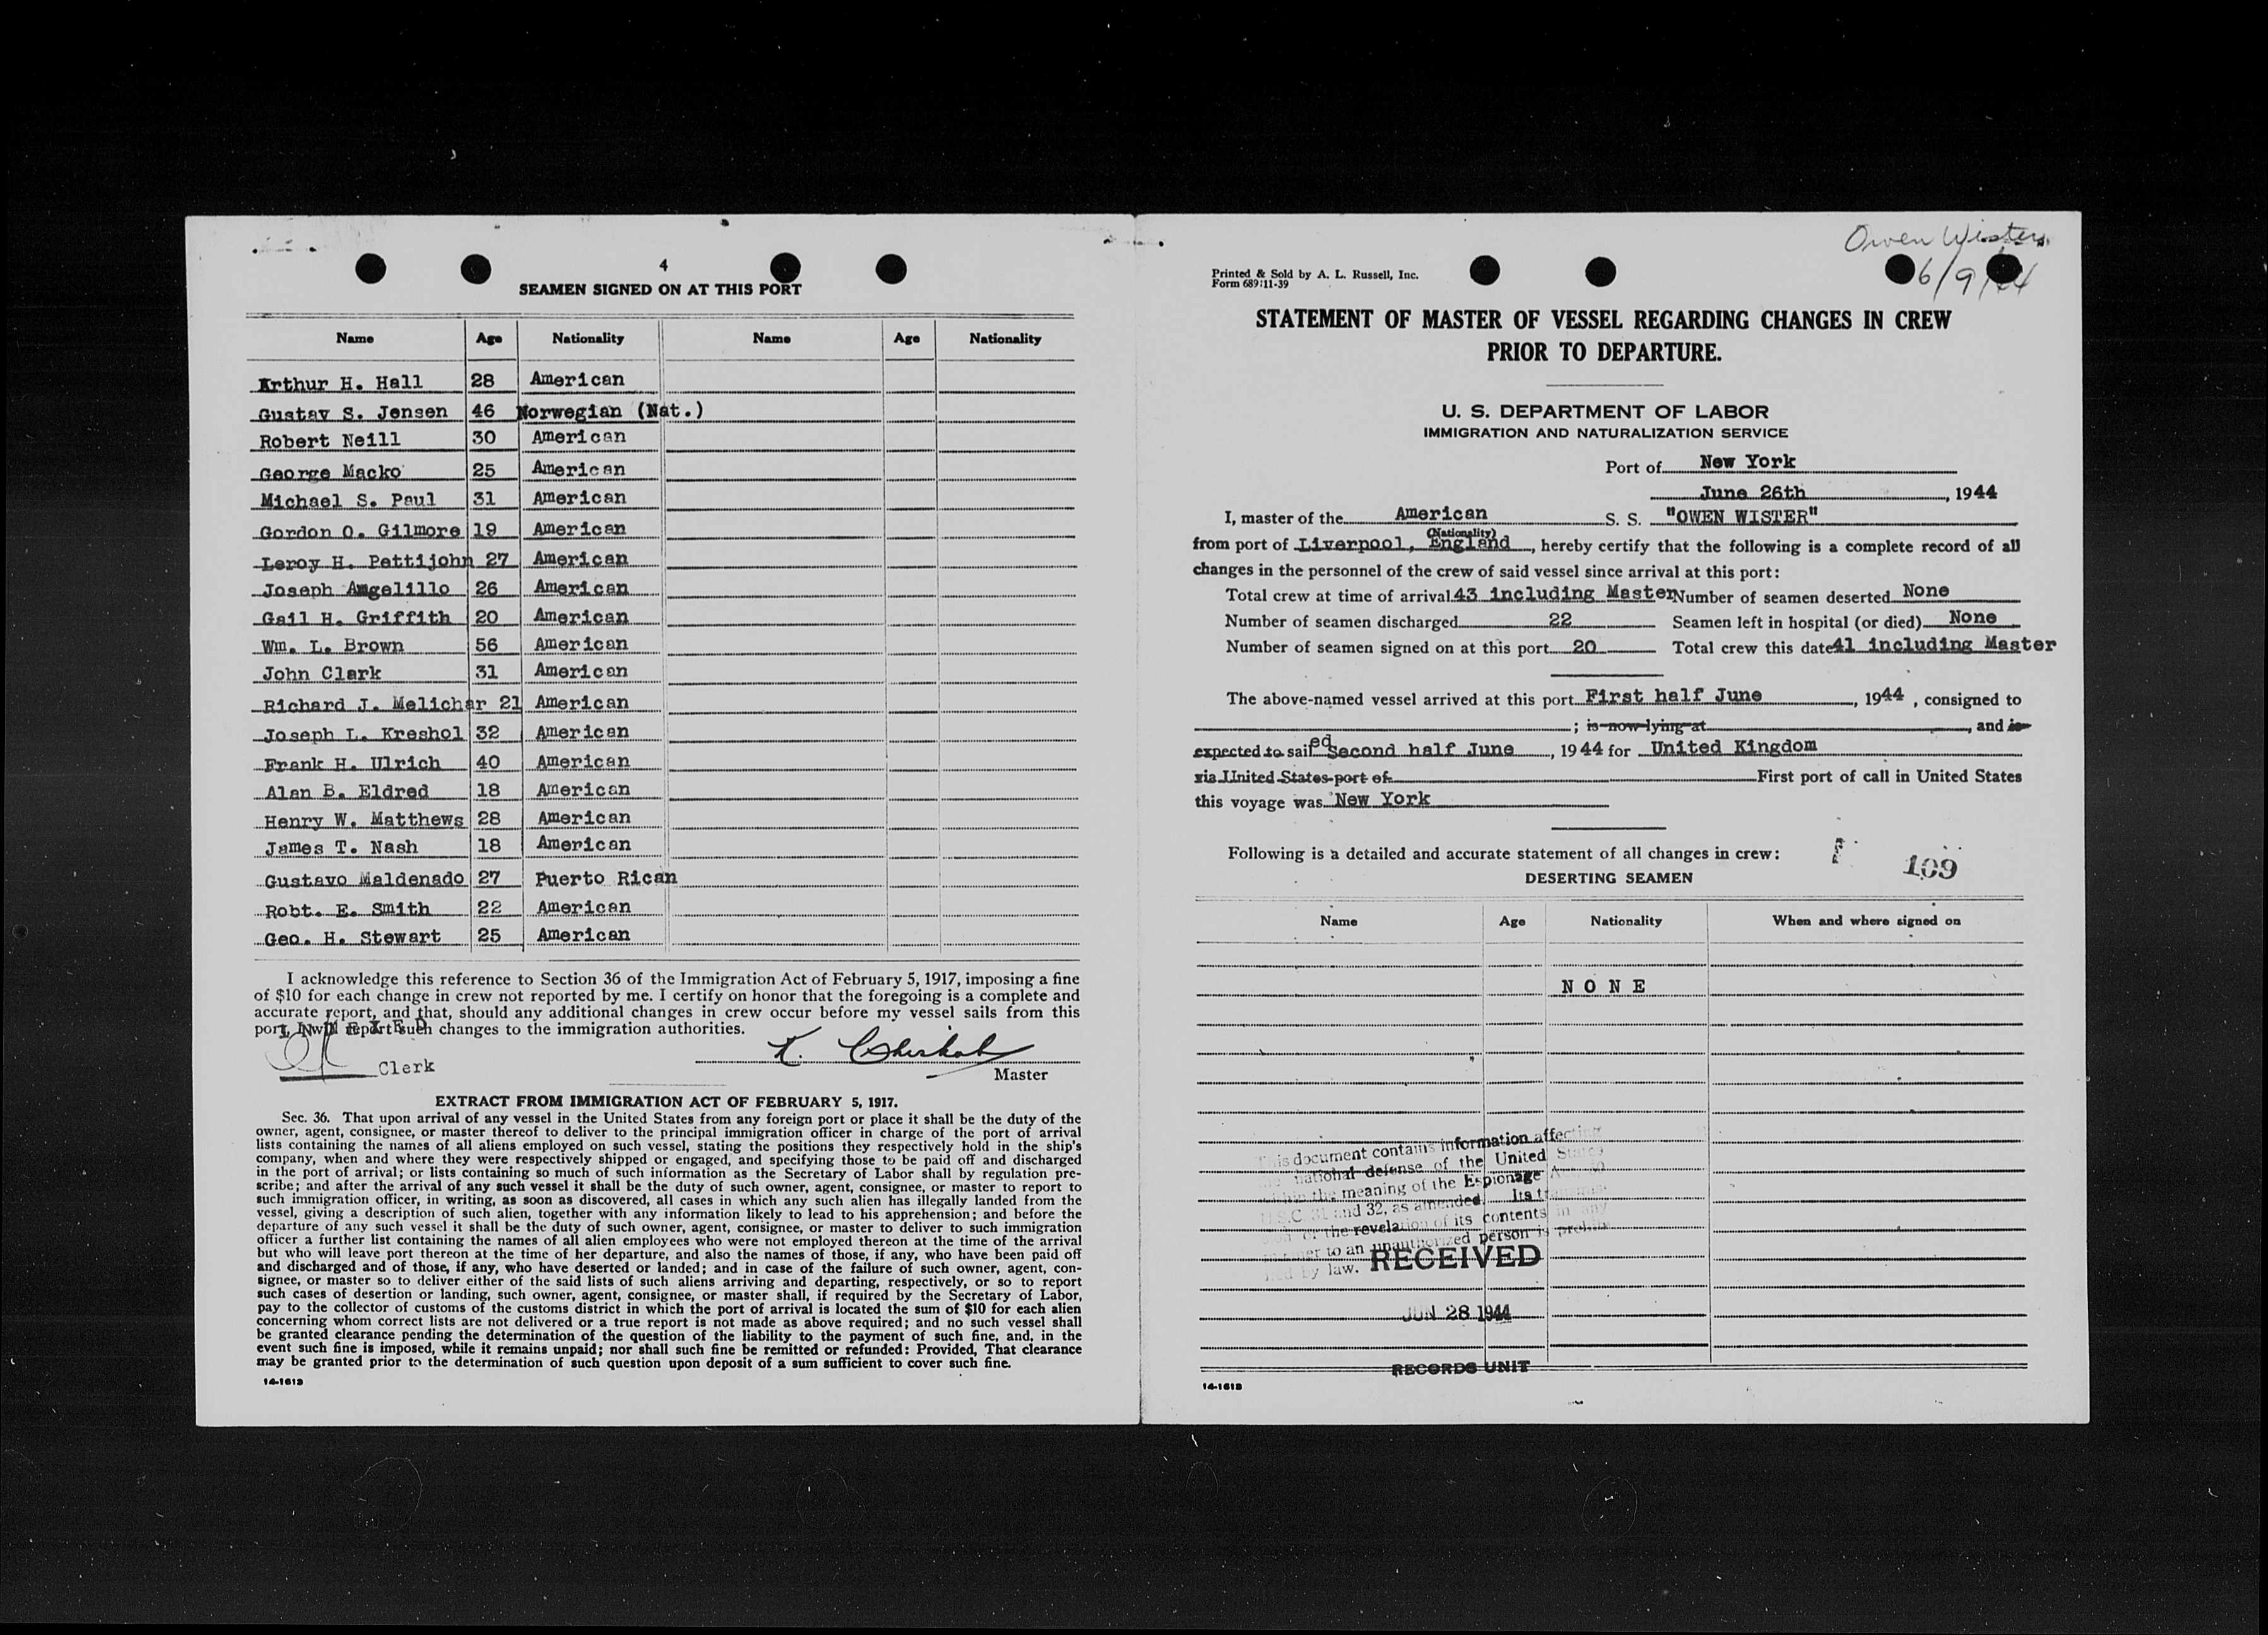 4
SEAMEN SIGNED ON AT THIS PORT
Name Age Nationality Name Age Nationality
Arthur H. Hall 28 American
Gustav S. Jensen 46 Norwegian (Nat.)
Robert Neill 30 American
George Macko 25 American
Michael S. Paul 31 American
Gordon O. Gilmore 19 American
Leroy H. Pettijohn 27 American
Joseph Angelillo 26 American
Gail H. Griffith 20 American
Wm. L. Brown 56 American
John Clark 31 American
Richard J. Melichar 21 American
Joseph L. Kreshol 32 American
Frank H. Ulrich 40 American
Alan B. Eldred 18 American
Henry W. Matthews 28 American
James T. Nash 18 American
Gustavo Maldenado 27 Puerto Rican
Robt. E. Smith 22 American
Geo. H. Stewart 25 American
I acknowledge this reference to Section 36 of the Immigration Act of February 5, 1917, imposing a fine
of $10 for each change in crew not reported by me. I certify on honor that the foregoing is a complete and
accurate report, and that, should any additional changes in crew occur before my vessel sails from this
port, I will report such changes to the immigration authorities.
Clerk
K.
Master
EXTRACT FROM IMMIGRATION ACT OF FEBRUARY 5, 1917.
Sec. 36. That upon arrival of any vessel in the United States from any foreign port or place it shall be the duty of the
owner, agent, consignee, or master thereof to deliver to the principal immigration officer in charge of the port of arrival
lists containing the names of all aliens employed on such vessel, stating the positions they respectively hold in the ship's
company, when and where they were respectively shipped or engaged, and specifying those to be paid off and discharged
in the port of arrival; or lists containing so much of such information as the Secretary of Labor shall by regulation pre-
scribe; and after the arrival of any such vessel it shall be the duty of such owner, agent, consignee, or master to report to
such immigration officer, in writing, as soon as discovered, all cases in which any such alien has illegally landed from the
vessel, giving a description of such alien, together with any information likely to lead to his apprehension; and before the
departure of any such vessel it shall be the duty of such owner, agent, consignee, or master to deliver to such immigration
officer a further list containing the names of all alien employees who were not employed thereon at the time of the arrival
but who will leave port thereon at the time of her departure, and also the names of those, if any, who have been paid off
and discharged and of those, if any, who have deserted or landed; and in case of the failure of such owner, agent, con-
signee, or master so to deliver either of the said lists of such aliens arriving and departing, respectively, or so to report
such cases of desertion or landing, such owner, agent, consignee, or master shall, if required by the Secretary of Labor,
pay to the collector of customs of the customs district in which the port of arrival is located the sum of $10 for each alien
concerning whom correct lists are not delivered or a true report is not made as above required; and no such vessel shall
be granted clearance pending the determination of the question of the liability to the payment of such fine, and, in the
event such fine is imposed, while it remains unpaid; nor shall such fine be remitted or refunded: Provided, That clearance
may be granted prior to the determination of such question upon deposit of a sum sufficient to cover such fine.
14-1613
Owen Wister
6/9/44
Printed & Sold by A. L. Russell, Inc.
Form 689:11-39
STATEMENT OF MASTER OF VESSEL REGARDING CHANGES IN CREW
PRIOR TO DEPARTURE.
U. S. DEPARTMENT OF LABOR
IMMIGRATION AND NATURALIZATION SERVICE
Port of New York
June 26th, 1944
I, master of the American S. S. "OWEN WISTER"
(Nationality)
from port of Liverpool, England, hereby certify that the following is a complete record of all
changes in the personnel of the crew of said vessel since arrival at this port:
Total crew at time of arrival 43 including Master Number of seamen deserted None
Number of seamen discharged 22 Seamen left in hospital (or died) None
Number of seamen signed on at this port 20 Total crew this date 41 including Master
The above-named vessel arrived at this port First half June, 1944, consigned to
; is now lying at , and is
expected to sailed Second half June, 1944 for United Kingdom
via United States port of First port of call in United States
this voyage was New York
Following is a detailed and accurate statement of all changes in crew:
109
DESERTING SEAMEN
Name Age Nationality When and where signed on
NONE
This document contains information affecting
national defense of the United States
within the meaning of the Espionage
U.S.C. 31 and 32, as amended. Its
or the revelation of its contents in any
manner to an unauthorized person is
by law.
RECEIVED
JUN 28 1944
RECORDS UNIT
14-1613